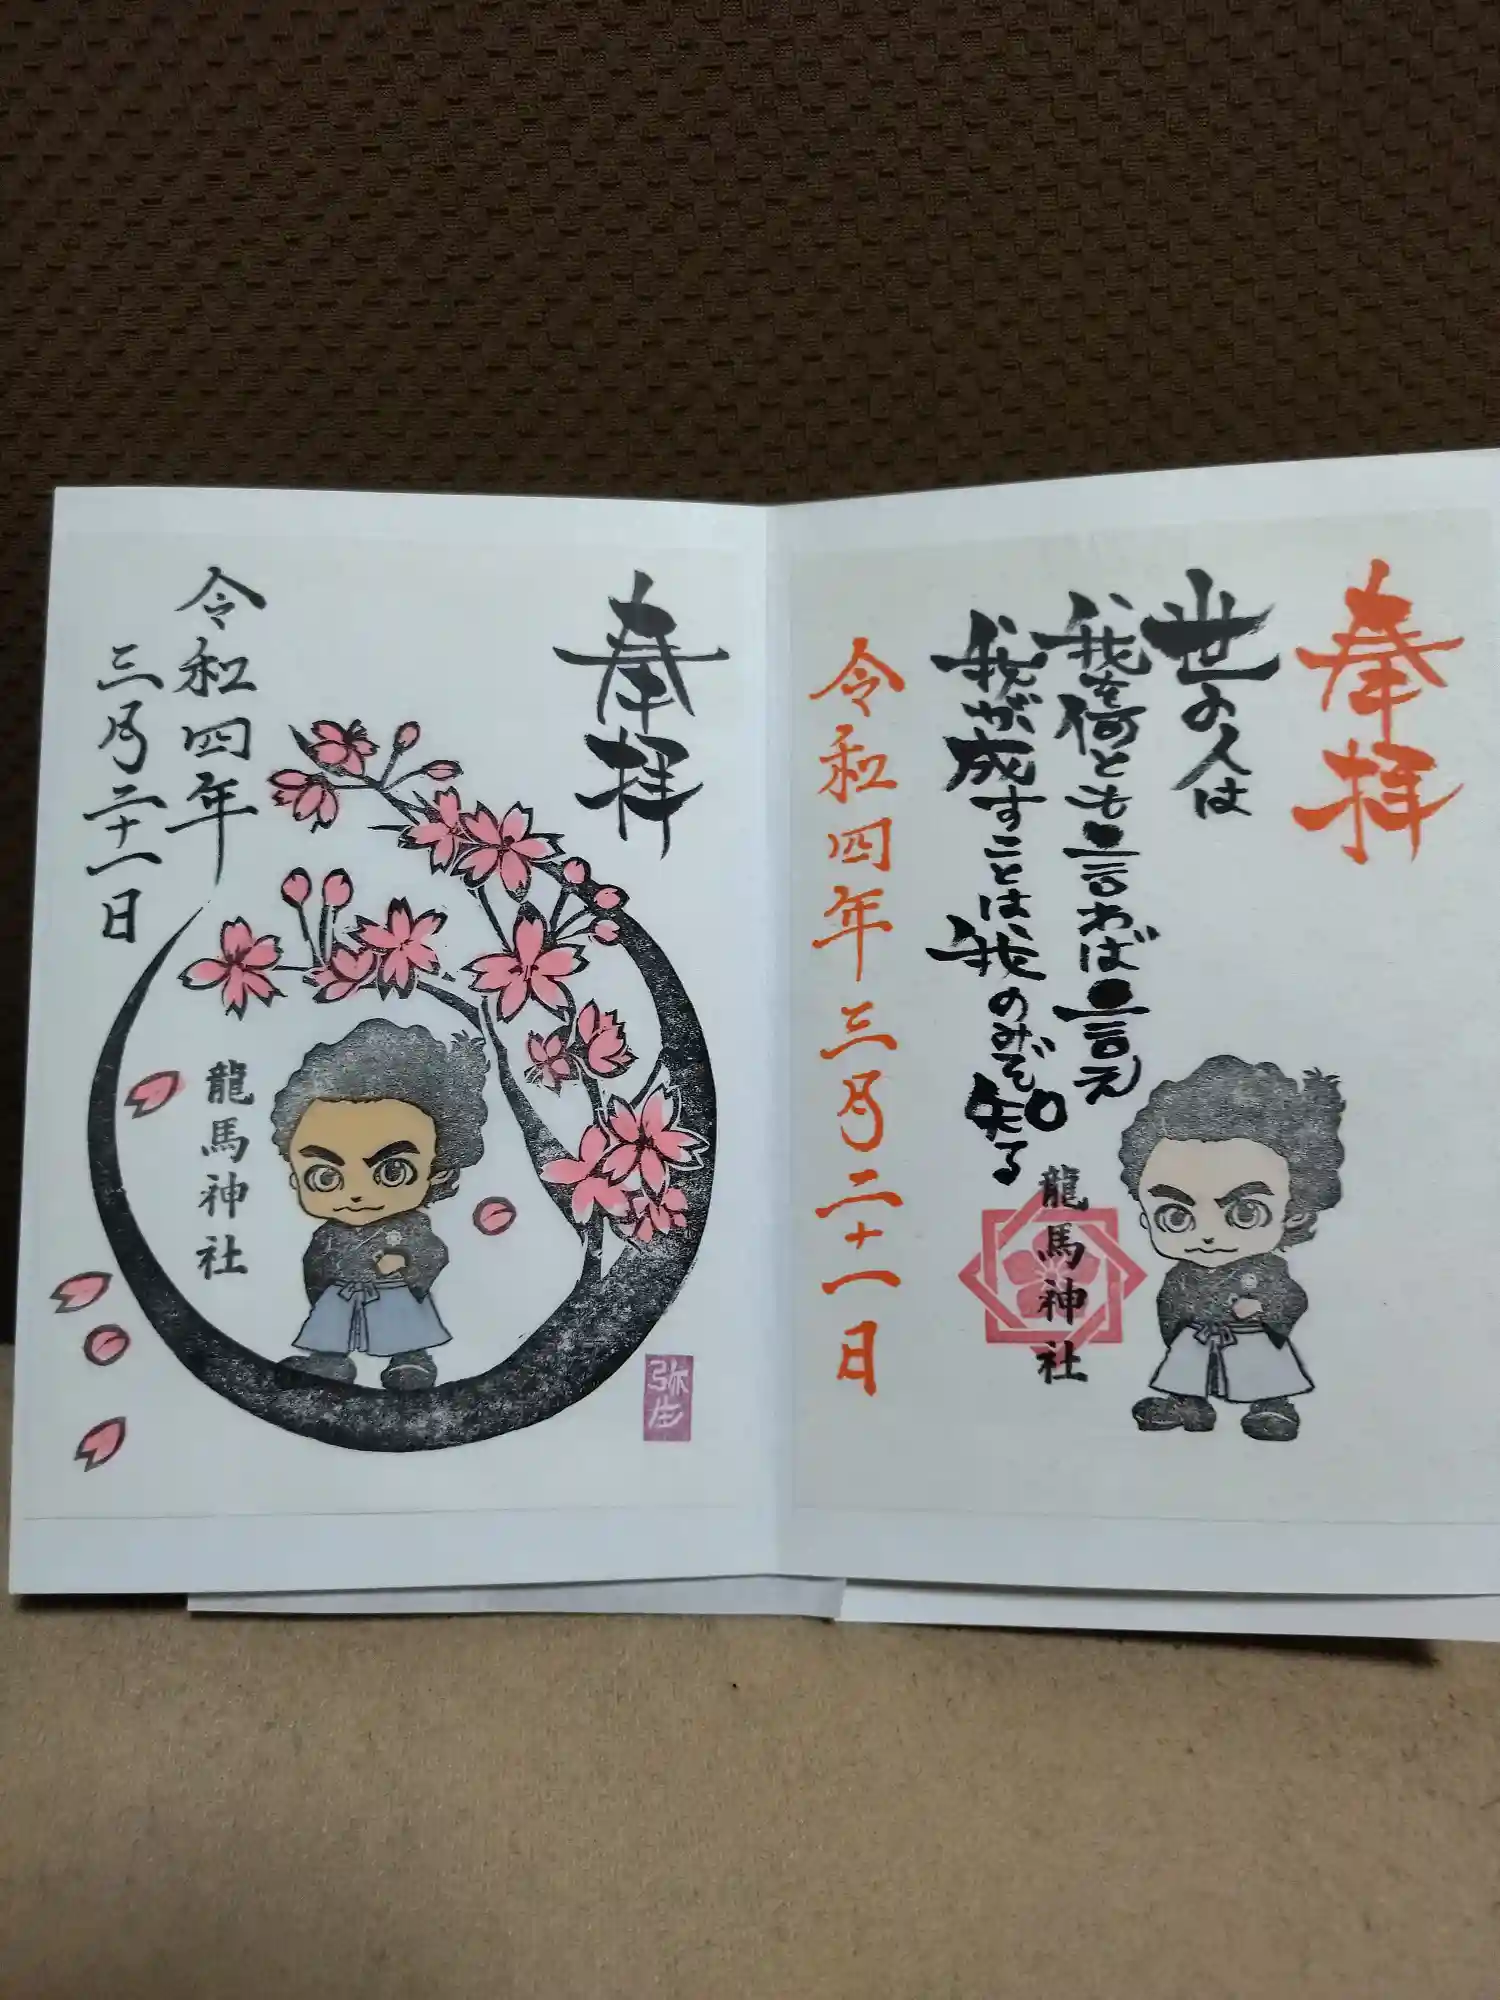 奉拝
世の人は
我を何とも言わば言え
我が成すことは我のみぞ知る
龍馬神社
令和四年三月二十一日
奉拝
令和四年
三月二十一日
龍馬神社
弥生